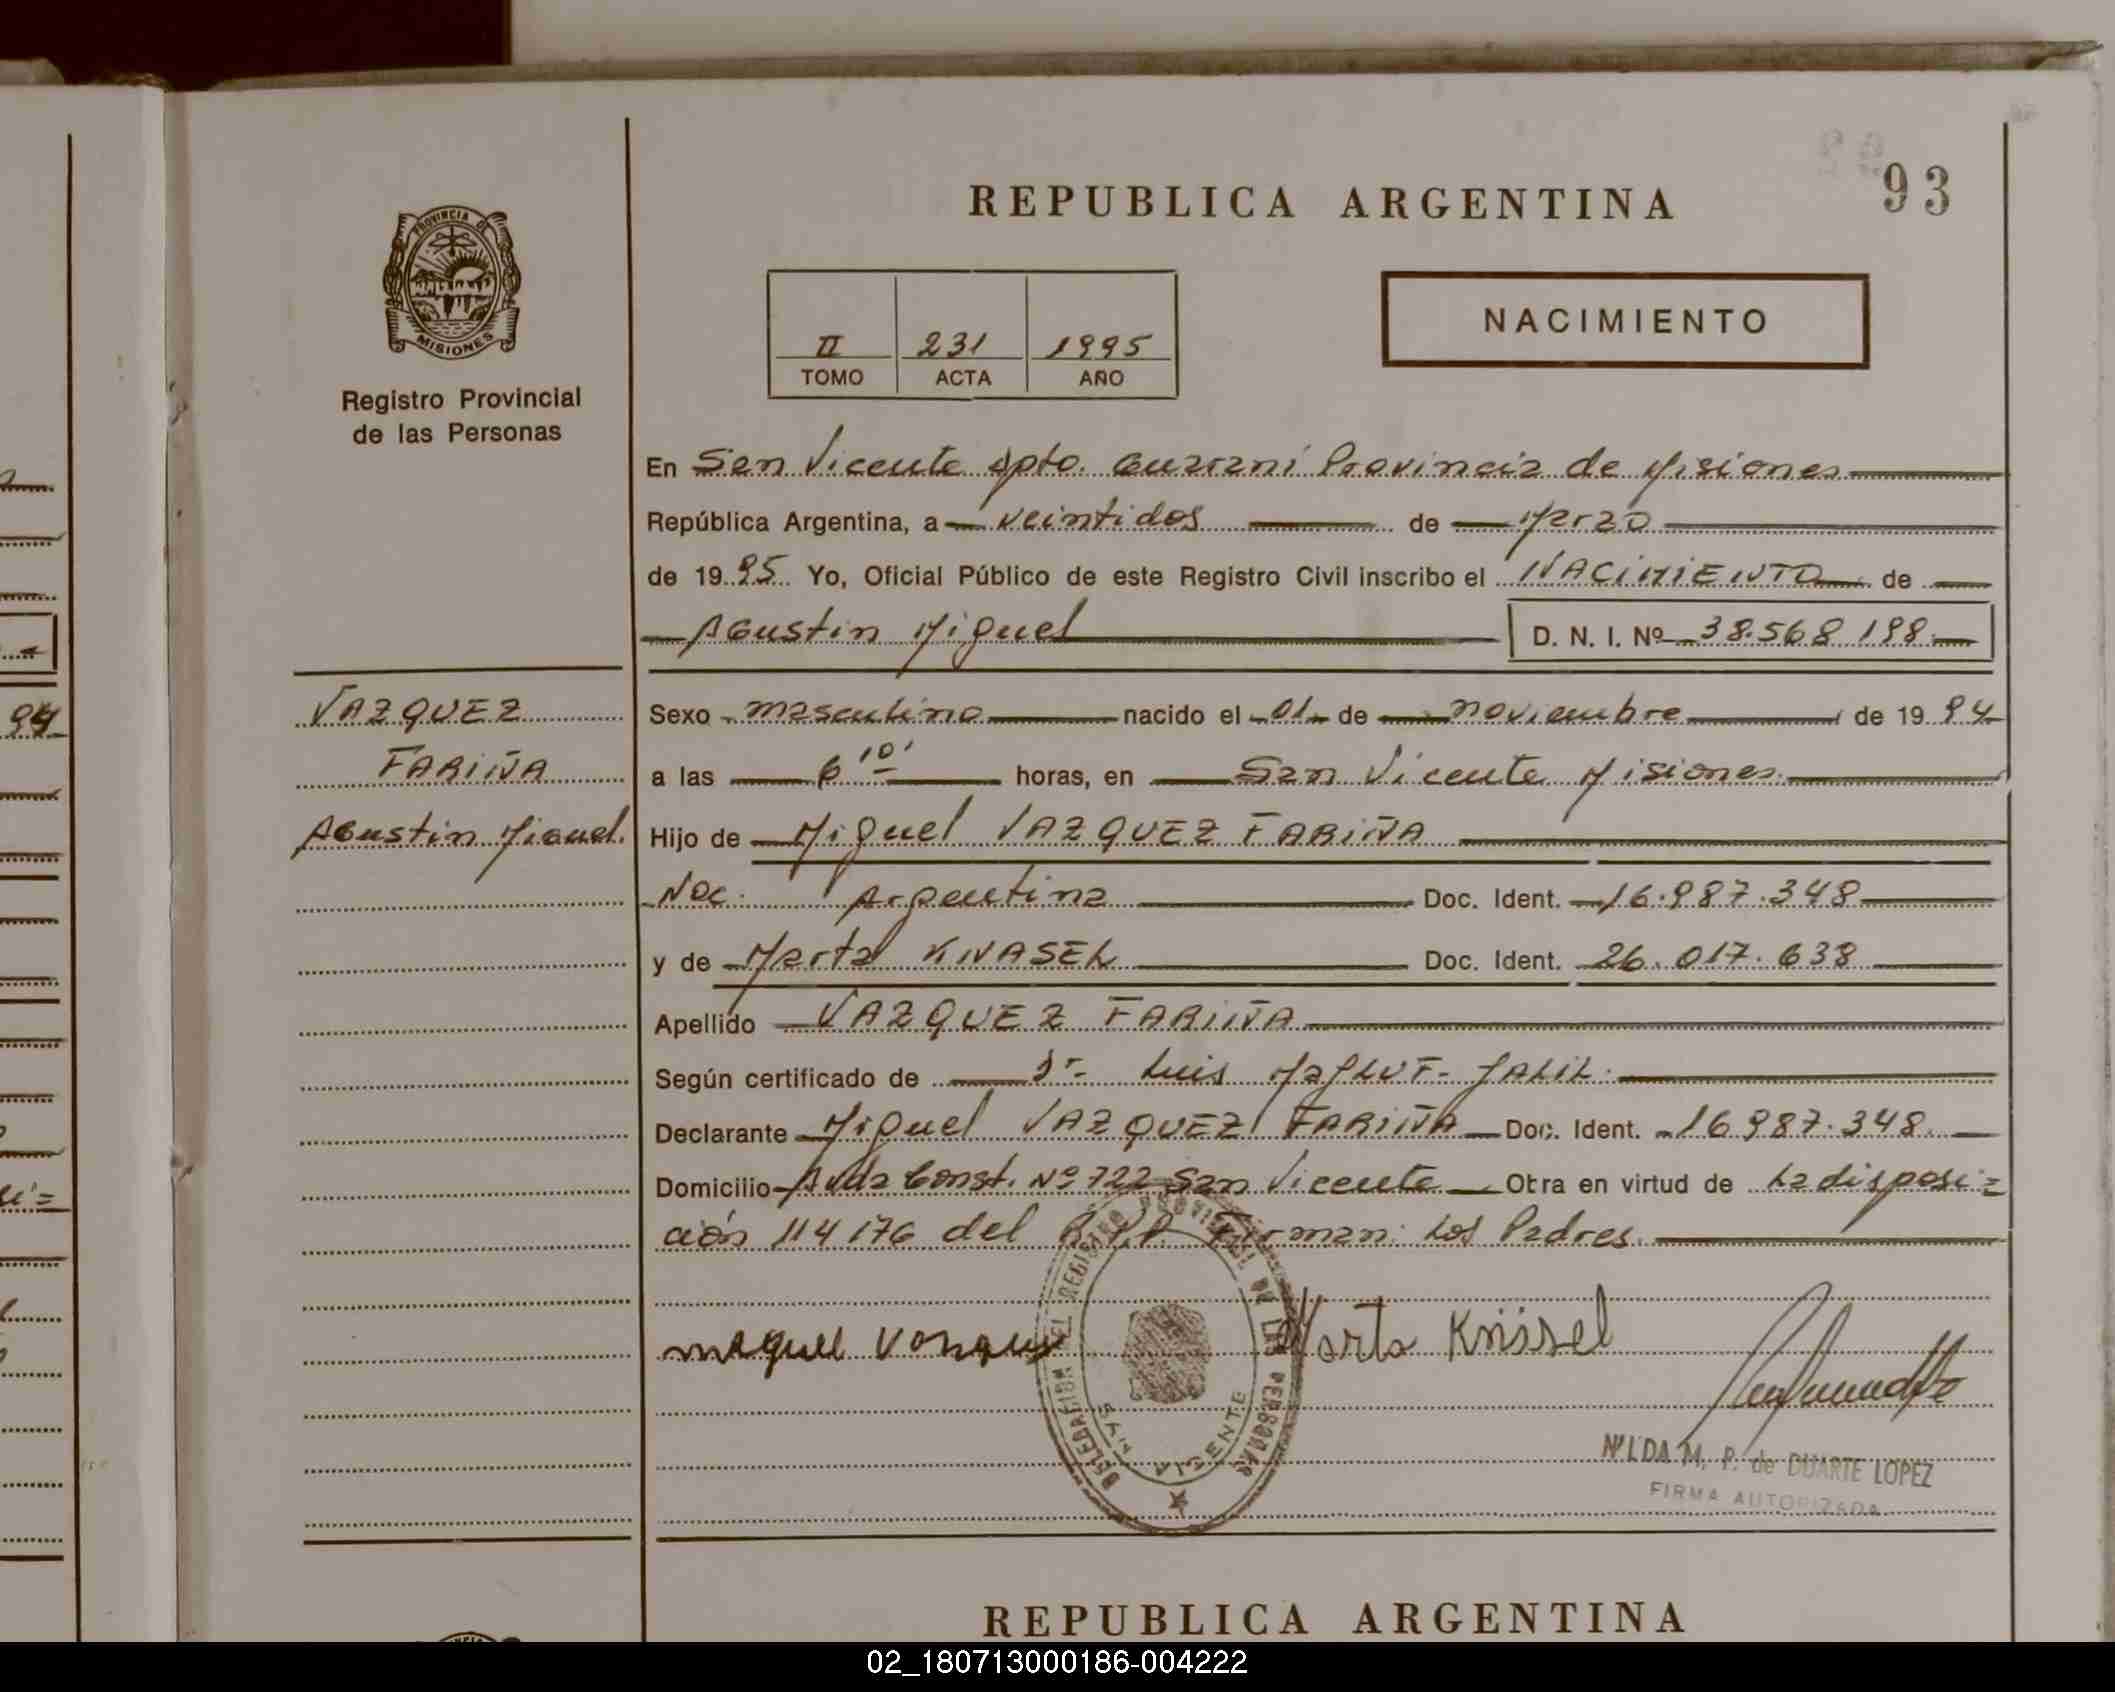 93
REPUBLICA ARGENTINA
PROVINCIA DE
MISIONES
Registro Provincial
de las Personas
II 231 1995
TOMO ACTA AÑO
NACIMIENTO
En San Vicente dpto. Guaraní Provincia de Misiones
República Argentina, a veintidos de Marzo
de 1995 Yo, Oficial Público de este Registro Civil inscribo el NACIMIENTO de
Agustin Miguel D. N. I. Nº 38.568.198
VAZQUEZ
FARIÑA
Agustin Miguel.
Sexo masculino nacido el 01 de noviembre de 1994
a las 6 10' horas, en San Vicente Misiones
Hijo de Miguel VAZQUEZ FARIÑA
Nac. Argentina Doc. Ident. 16.987.348
y de Marta KNASEL Doc. Ident. 26.017.638
Apellido VAZQUEZ FARIÑA
Según certificado de Dr. Luis JALIL.
Declarante Miguel VAZQUEZ FARIÑA Doc. Ident. 16987.348
Domicilio Avda Const. Nº 722 San Vicente Otra en virtud de La disposi=
ción 114176 del R.P.P. Firman: Los Padres.
miguel Marta Knüsel
DELEGACION DEL REGISTRO PROVINCIAL DE LAS PERSONAS
SAN VICENTE
NILDA M. P. de DUARTE LOPEZ
FIRMA AUTORIZADA
REPUBLICA ARGENTINA
02_180713000186-004222